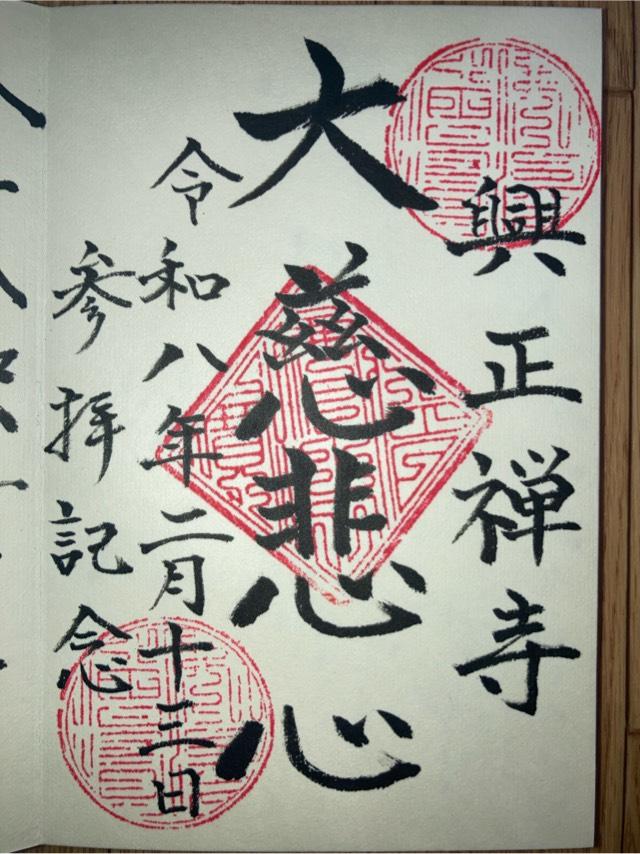 興正禅寺
大慈悲心
令和八年二月十三日
参拝記念